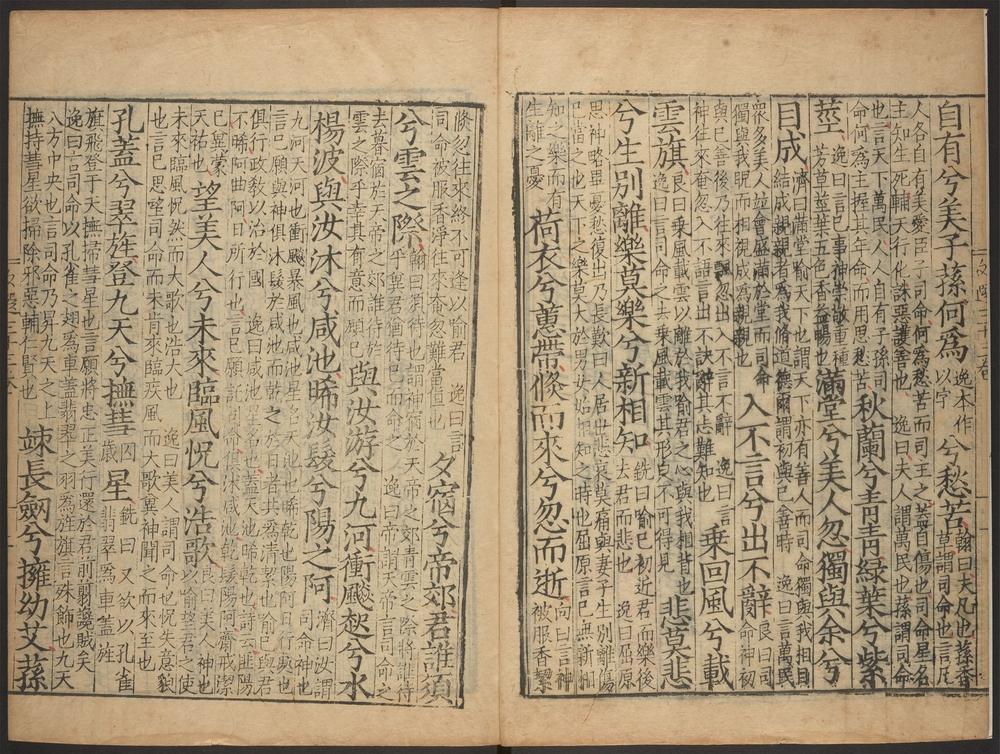 自有兮美子蓀何爲逸本作以字兮愁苦翰曰夫凡也蓀香草謂司命也言凡
人各自有美愛臣子司命何爲愁苦而司主之蓋自傷也司命星名
主知生死輔天行化誅惡護善也 逸曰夫人謂萬民也蓀謂司命
也言天下萬民人人自有子孫司
命何爲主握其年命而用思愁苦秋蘭兮青青綠葉兮紫
莖逸曰言己事神崇敬重種芳草莖葉五色香益暢也滿堂兮美人忽獨與余兮
目成濟曰滿堂喻天下也謂天下亦有善人而司命獨與我相目結成親親者爲我脩道德爾謂初與己善時 逸曰言萬民
衆多美人並會盛滿於堂而司命
獨與我睨而相視成爲親親也入不言兮出不辭良曰司命神初
與己善後乃往來飄忽入不言出不辭 逸曰言
神往來奄忽入不語言出不訣辭其志難知也乘回風兮載
雲旗良曰乘風載雲以離於我喻君之心與我相背也逸曰言司命之去乘風載雲其形皃不可得見悲莫悲
兮生別離樂莫樂兮新相知銑曰喻己初近君而樂後去君而悲也 逸曰屈原
思神略畢憂愁復出乃長歎曰人居世悲哀莫痛與妻子生別離傷
己當之也天下之樂莫大於男女始相知之時也屈原言己無新相
知之樂而有
生離之憂荷衣兮蕙帶倐而來兮忽而逝向曰言神被服香絜
倐忽往來終不可逢以喻君 逸曰言
司命被服香淨往來奄忽難當值也夕宿兮帝郊君誰須
兮雲之際翰曰須待也謂神宿於天帝之郊青雲之際將誰待乎冀君猶待己而命之 逸曰帝謂天帝言司命之
去暮宿於天帝之郊誰待於
雲之際乎幸其有意而顧己與汝游兮九河衝飈起兮水
揚波與汝沐兮咸池晞汝髮兮陽之阿濟曰汝謂司命神也
九河天河也衝飈暴風也咸池星名天池也晞乾也陽阿日行處也
言己願與神俱沐髮於咸池而乾之於日者其爲清絜也喻己與君
俱行政教以治於國 逸曰咸池星名也蓋天池晞乾也詩云匪陽
不晞阿曲阿日所行也言己願託司命俱沐咸池乾髮陽阿齋戒潔
己冀蒙
天祐也望美人兮未來臨風怳兮浩歌良曰美人神也以喻望君之使
未來臨風怳然而大歌也浩大也 逸曰美人謂司命也怳失意皃
也言己思望司命而未肯來臨疾風而大歌冀神聞之而來至也
孔蓋兮翠旌登九天兮撫彗歲囚星銑曰又欲以孔雀翡翠爲車蓋旌
旌飛登于天撫掃彗星也言願將忠正美行還於君前翦讒賊矣
逸曰言司命以孔雀之翅爲車蓋翡翠之羽爲旌旗言殊飾也九天
八方中央也言司命乃昇九天之上
撫持彗星欲掃除邪惡輔仁賢也竦長劒兮擁幼艾蓀